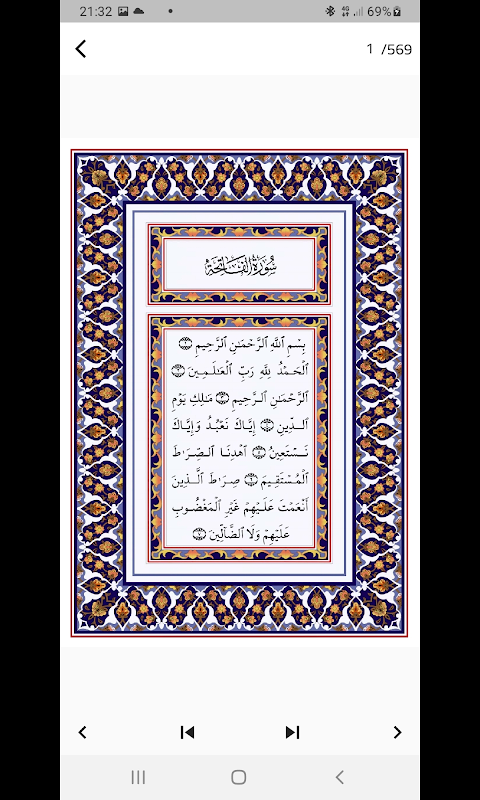 21:32
4G
69%
1 /569
سُورَةُ الْفَاتِحَةِ
بِسْمِ ٱللَّهِ ٱلرَّحْمَٰنِ ٱلرَّحِيمِ ۝
ٱلْحَمْدُ لِلَّهِ رَبِّ ٱلْعَٰلَمِينَ ۝
ٱلرَّحْمَٰنِ ٱلرَّحِيمِ ۝ مَٰلِكِ يَوْمِ
ٱلدِّينِ ۝ إِيَّاكَ نَعْبُدُ وَإِيَّاكَ
نَسْتَعِينُ ۝ ٱهْدِنَا ٱلصِّرَٰطَ
ٱلْمُسْتَقِيمَ ۝ صِرَٰطَ ٱلَّذِينَ
أَنْعَمْتَ عَلَيْهِمْ غَيْرِ ٱلْمَغْضُوبِ
عَلَيْهِمْ وَلَا ٱلضَّآلِّينَ ۝